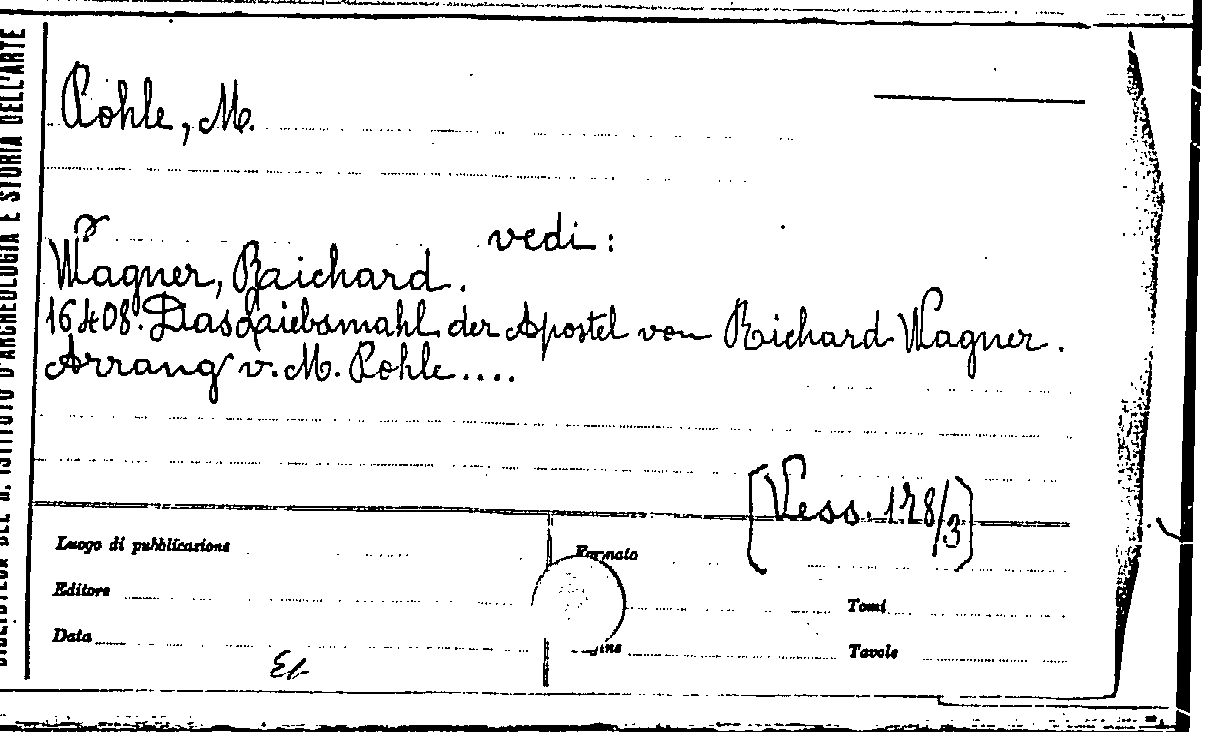 BIBLIOTECA DEL R. ISTITUTO D'ARCHEOLOGIA E STORIA DELL'ARTE
Pohle, M.
vedi:
Wagner, Raichard.
16408. Das Laiebsmahl der Apostel von Raichard Wagner.
Arrang v. M. Pohle....
[Vess. 128/3]
Luogo di pubblicazione
Formato
Editore
Tomi
Data
Tavole